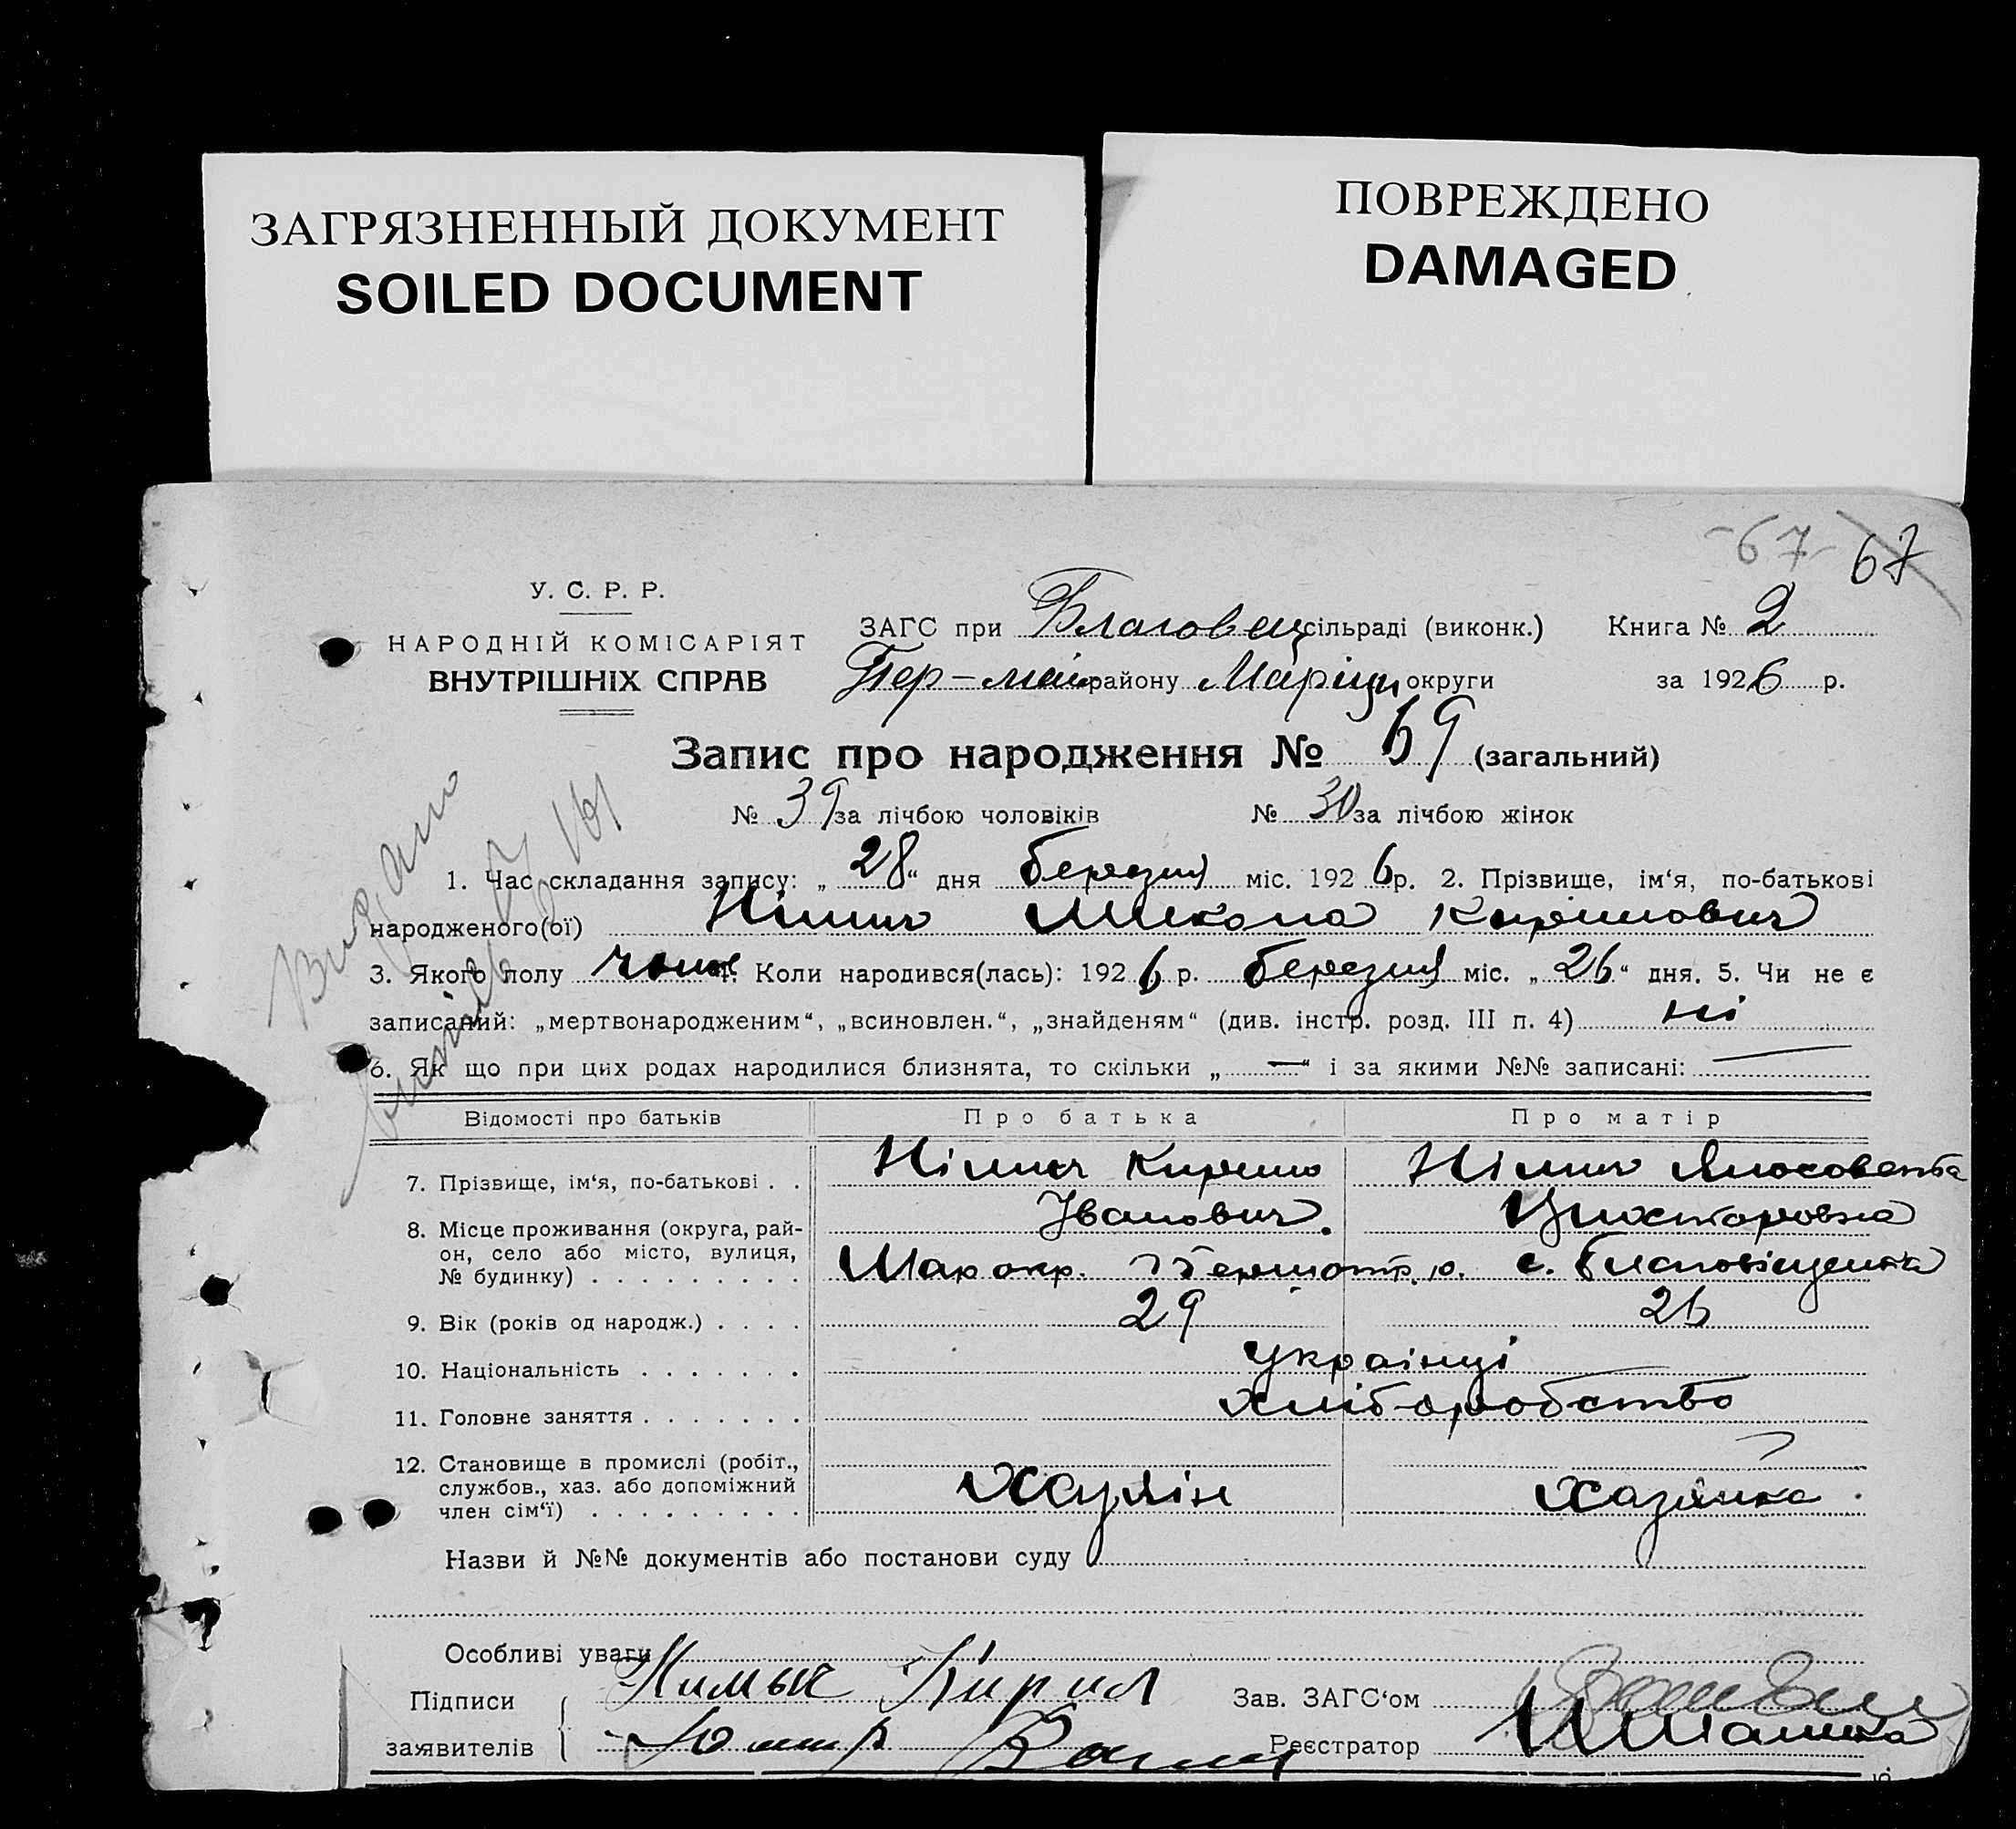 ЗАГРЯЗНЕННЫЙ ДОКУМЕНТ
SOILED DOCUMENT
ПОВРЕЖДЕНО
DAMAGED
-67- 67
У. С. Р. Р.
НАРОДНІЙ КОМІСАРІЯТ
ВНУТРІШНІХ СПРАВ
ЗАГС при Благовещ сільраді (виконк.) Книга № 2
району Маріуп округи за 1926 р.
Запис про народження № 69 (загальний)
№ 39 за лічбою чоловіків № 30 за лічбою жінок
1. Час складання запису: „ 28 “ дня березня міс. 192 6 р. 2. Прізвище, ім‘я, по-батькові
народженого(ої) Німич Микола Кирилович
3. Якого полу чол 4. Коли народився(лась): 192 6 р. березня міс. „ 26 “ дня. 5. Чи не є
записаний: „мертвонародженим“, „всиновлен.“, „знайденям“ (див. інстр. розд. III п. 4) ні
6. Як що при цих родах народилися близнята, то скільки „ — “ і за якими №№ записані: —
Відомості про батьків Про батька Про матір
7. Прізвище, ім‘я, по-батькові . . Німич Кирило Німич
Іванович.
8. Місце проживання (округа, рай-
он, село або місто, вулиця,
№ будинку) . . . . . . . . . Мар окр. с. Благовіщенка
9. Вік (років од народж.) . . . . 29 26
10. Національність . . . . . . . українці
11. Головне заняття . . . . . . . хліборобство
12. Становище в промислі (робіт.,
службов., хаз. або допоміжний
член сім‘ї) . . . . . . . . . Хазяїн Хазяйка
Назви й №№ документів або постанови суду
Особливі уваги
Підписи Кирил Зав. ЗАГС‘ом
заявителів Реєстратор